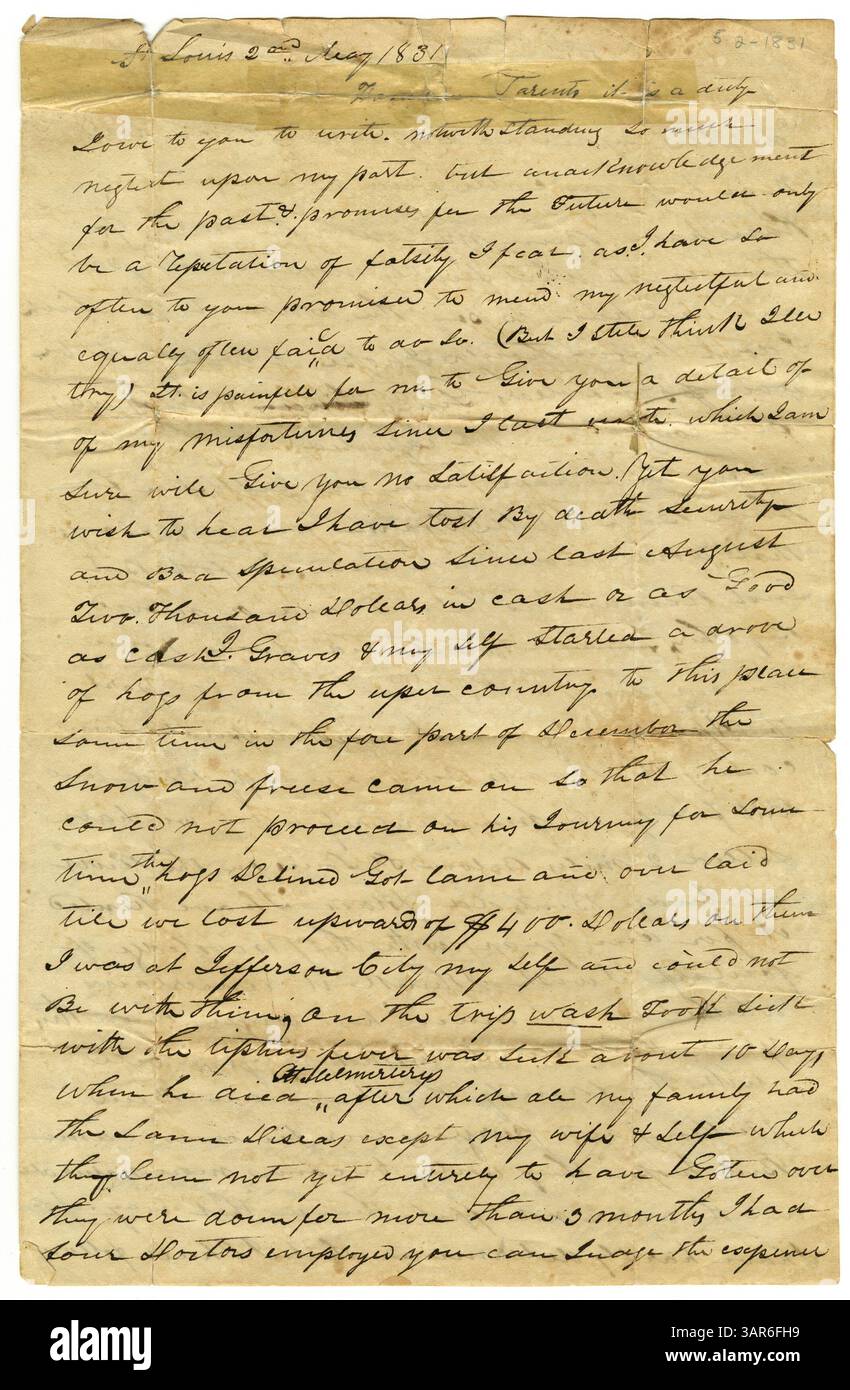 5 2-1831
St Louis 2nd May 1831
Parents it is a duty
I owe to you to write. notwithstanding so much
neglect upon my part. but anacknowledgement
for the past & promises for the Future would only
be a Repetation of falsity I fear. as I have so
often to you promised to mend my neglectful and
equally often fail'd to do so. (But I still think Ill
try) It is painfull for me to Give you a detail of
of my misfortunes since I last wrote. which I am
sure will Give you no satisfaction. Yet you
wish to hear I have lost By death security
and Bad speculation since last August
Two. Thousand Dolears in cash or as Good
as cash J. Graves & my self started a drove
of hogs from the uper country to this place
some time in the fore part of December the
snow and freese came on so that he
could not proceed on his Journey for some
time the hogs Declined Got lame and over laid
till we lost upward of $400. Dolears on them
I was at Jefferson City my self and could not
Be with them, on the trip wash Took sick
with the tiphus fever was sick about 10 Days
when he died at Montgomerys after which all my family had
the same Diseas except my wife & self which
they seem not yet entirely to have Goten over
they were down for more than 3 months I had
four Doctors employed you can Judge the expence
alamy
Image ID: 3AR6FH9
www.alamy.com